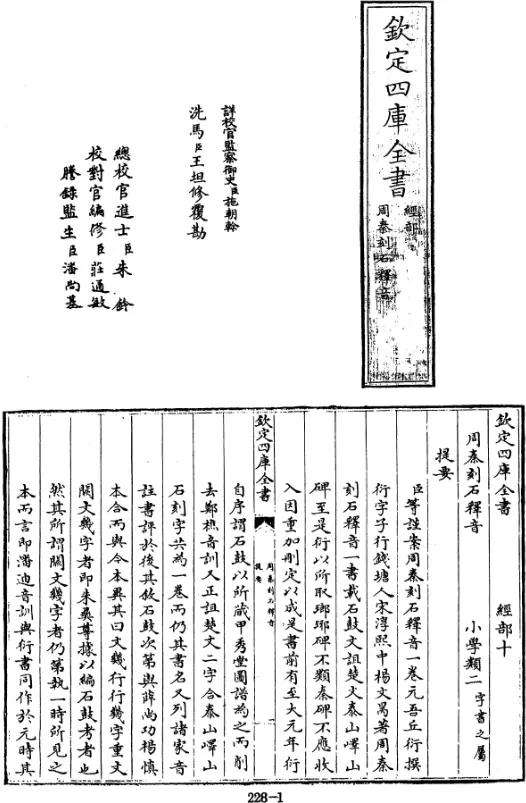 欽定四庫全書
經部
周秦刻石釋音
詳校官監察御史臣施朝幹
洗馬臣王坦修覆勘
總校官進士臣朱鈐
校對官編修臣莊通敏
謄錄監生臣潘尚基
欽定四庫全書
經部十
周秦刻石釋音
小學類二字書之屬
提要
臣等謹案周秦刻石釋音一卷元吾丘衍撰
衍字子行錢塘人宋淳熙中楊文昺著周秦
刻石釋音一書載石鼓文詛楚文泰山嶧山
碑至是衍以所取瑯琊碑不類秦碑不應收
入因重加刪定以成是書前有至大元年衍
欽定四庫全書
周秦刻石釋音
提要
一
自序謂石鼓以所藏甲秀堂圖譜為之而削
去鄭樵音訓又正詛楚文二字合泰山嶧山
石刻字共為一卷而仍其書名又列諸家音
註書評於後其敘石鼓次第與薛尚功楊慎
本合而與今本異其曰文幾行行幾字重文
闕文幾字者即朱彝尊據以編石鼓考者也
然其所謂闕文幾字者仍第執一時所見之
本而言即潘迪音訓與衍書同作於元時其
228-1